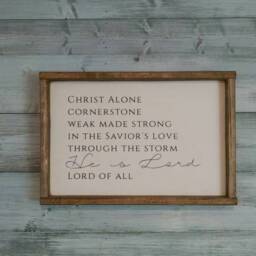 Christ Alone
cornerstone
weak made strong
in the Savior's love
through the storm
He is Lord
Lord of all